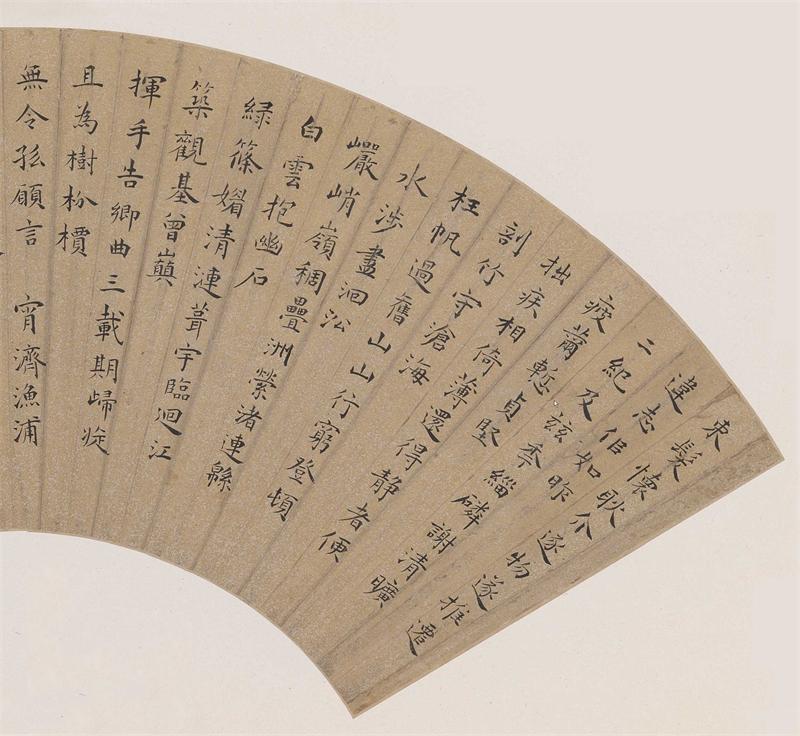 束髮懷耿介逐物遂推遷
違志佀如昨
二紀及茲秊緇磷謝清曠
疲薾慙貞堅
拙疾相倚薄還得靜者便
剖竹守滄海
枉帆過舊山山行窮登頓
水涉盡洄㳂
巖峭嶺稠疊洲縈渚連緜
白雲抱幽石
綠篠媚清漣葺宇臨迴江
築觀基曾巔
揮手告鄉曲三載期歸旋
且為樹枌檟
無令孤願言 宵濟漁浦